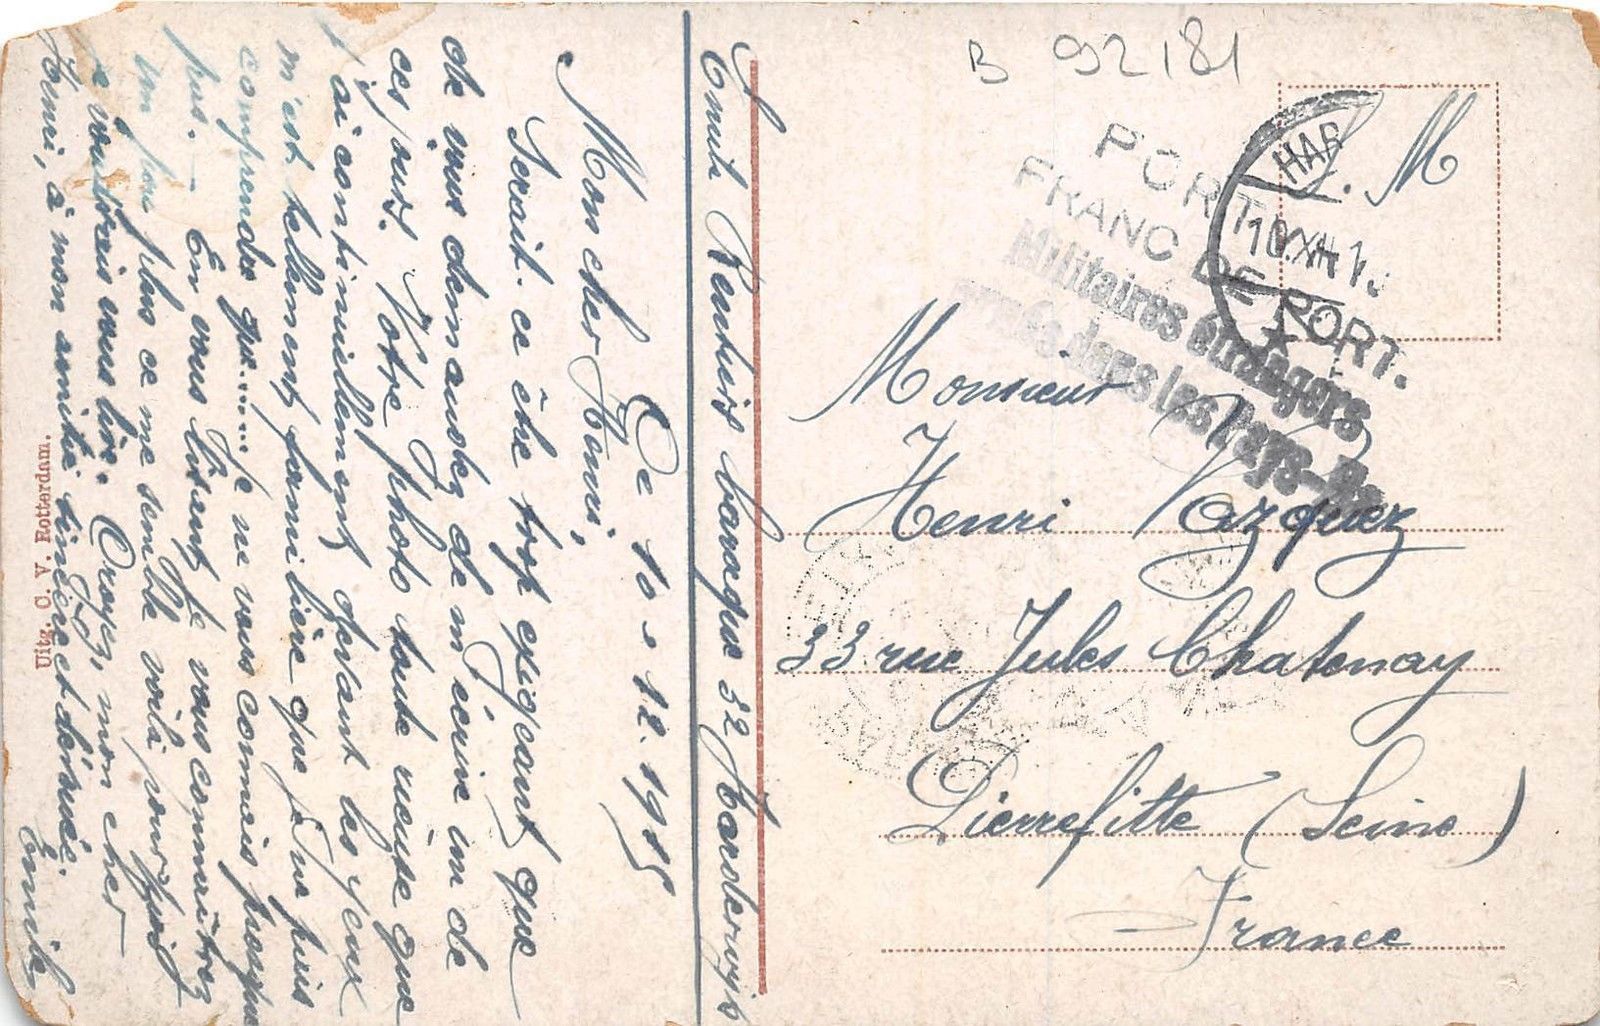 B 92181
S. M
HAR
10.XII.1
PORT.
FRANC DE PORT.
Militaires étrangers
dans les Pays-Ba
Monsieur
Henri Vazquez
33 rue Jules Chatenay
Pierrefitte (Seine)
France
Emile Rentiers baraque 32 Harderwijk
Ce 10-12.1915
Mon cher Henri,
Serait-ce être trop exigeant que
de vous demander de m'écrire un de
ces jours. Votre photo toute récente que
j'ai continuellement devant les yeux
m'est tellement familière que je ne puis
comprendre que..... je ne vous connais presque
pas. - En vous lisant je vous connaîtrez
un peu plus ce me semble voilà pourquoi
je voudrais vous lire. Croyez, mon cher
Henri, à mon amitié sincère et dévouée.
Emile
Uitg. C. V. Rotterdam.